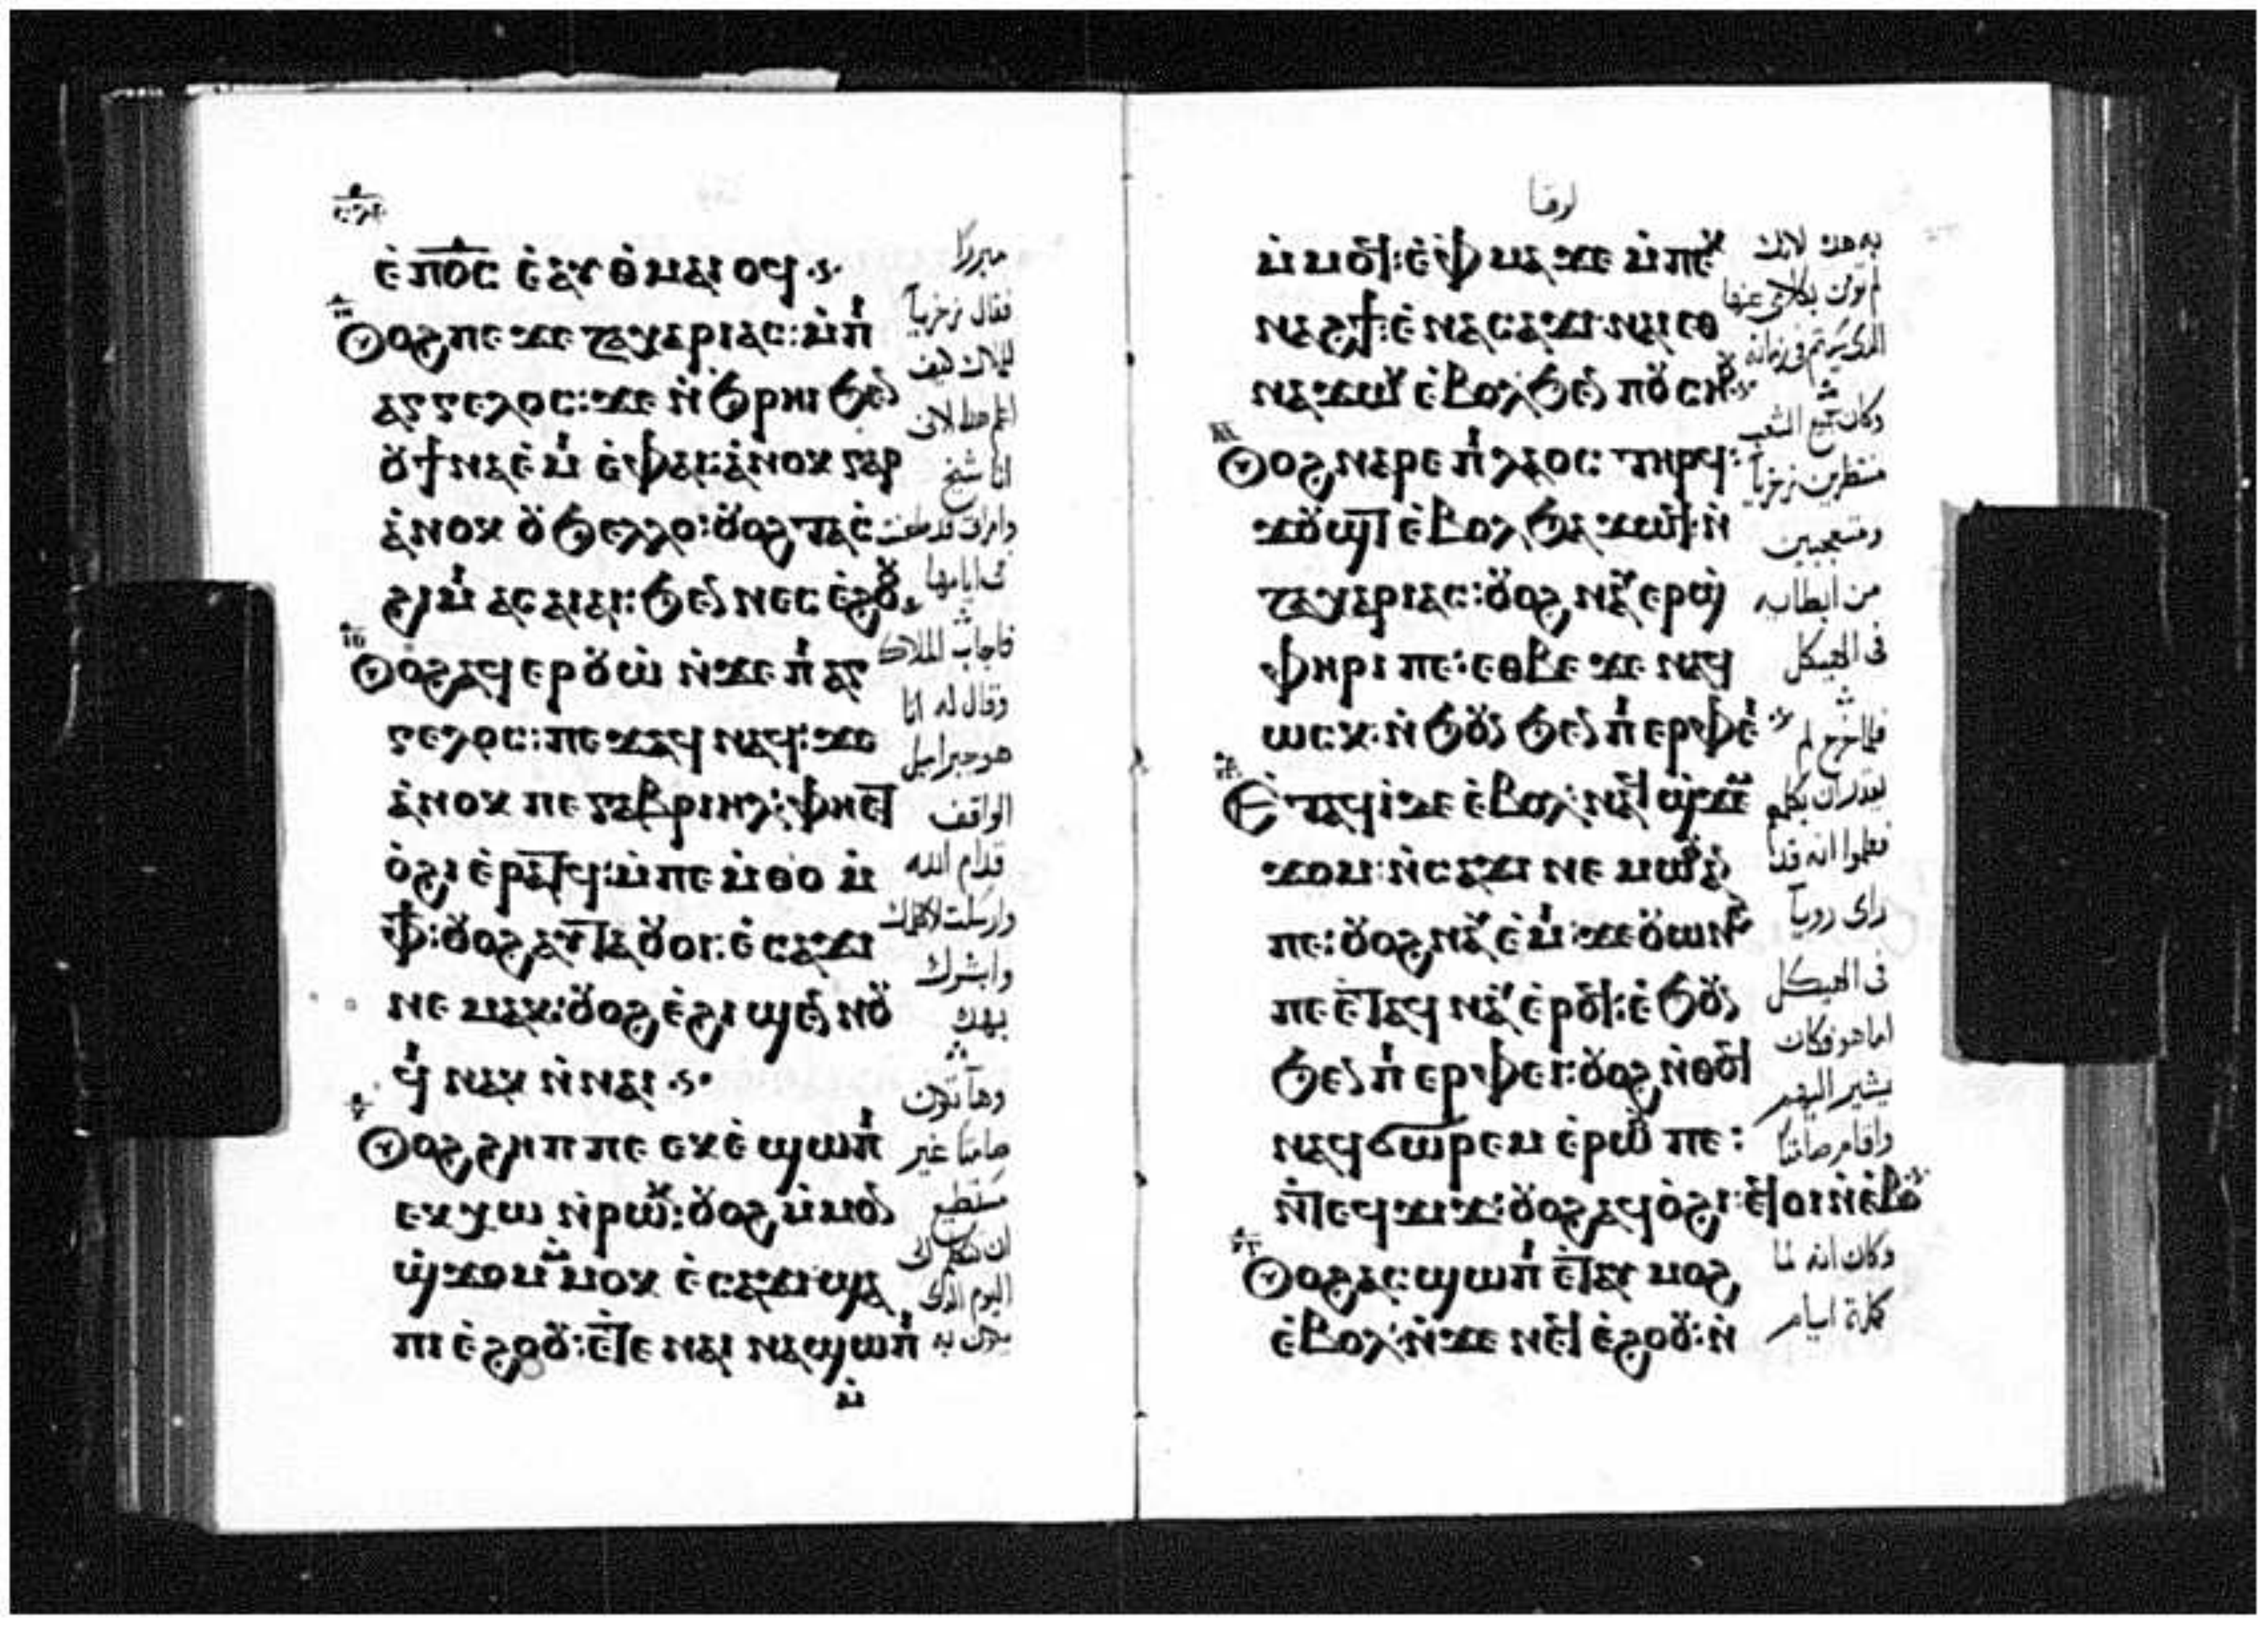 ⲉ̀ⲡⲟ̅ⲥ̅ ⲉ̀ⲁⲩⲑⲙⲁⲓⲟϥ
ⲓⲏ
ⲟⲩⲟϩ ⲡⲉϫⲉ ⲍⲁⲭⲁⲣⲓⲁⲥ: ⲙ̀ⲡⲓ
ⲁⲅⲅⲉⲗⲟⲥ: ϫⲉ ⲛ̀ϧⲣⲏⲓ ϧⲉⲛ
ⲟⲩϯⲛⲁⲉ̀ⲙⲓ ⲉ̀ⲫⲁⲓ: ⲁ̀ⲛⲟⲕ ⲅⲁⲣ
ⲁ̀ⲛⲟⲕ ⲟⲩϧⲉⲗⲗⲟ: ⲟⲩⲟϩ ⲧⲁⲥ̀
ϩⲓⲙⲓ ⲁⲥⲁⲓⲁⲓ: ϧⲉⲛ ⲛⲉⲥⲉ̀ϩⲟⲟⲩ
ⲓⲑ
ⲟⲩⲟϩ ⲁϥⲉⲣⲟⲩⲱ̀ ⲛ̀ϫⲉ ⲡⲓⲁⲅ
ⲅⲉⲗⲟⲥ: ⲡⲉϫⲁϥ ⲛⲁϥ: ϫⲉ
ⲁ̀ⲛⲟⲕ ⲡⲉ ⲅⲁⲃⲣⲓⲏⲗ: ⲫⲏⲉⲧ
ⲟ̀ϩⲓ ⲉ̀ⲣⲁⲧϥ: ⲙ̀ⲡⲉⲙ̀ⲑⲟ ⲙ̀
ⲫϯ: ⲟⲩⲟϩ ⲁⲩⲧⲁⲟⲩⲟⲓ: ⲉ̀ⲥⲁϫⲓ
ⲛⲉⲙⲁⲕ: ⲟⲩⲟϩ ⲉ̀ϩⲓϣⲉⲛⲛⲟⲩ
ϥⲓ ⲛⲁⲕ ⲛ̀ⲛⲁⲓ
ⲕ
ⲟⲩⲟϩ ϩⲏⲡⲡⲉ ⲉⲕⲉ̀ϣⲱⲡⲓ
ⲉⲕⲭⲱ ⲛ̀ⲣⲱⲕ: ⲟⲩⲟϩ ⲙ̀ⲙⲟⲛ
ϣ̀ϫⲟⲙ ⲙ̀ⲙⲟⲕ ⲉ̀ⲥⲁϫⲓ ϣⲁ
ⲡⲓⲉ̀ϩⲟⲟⲩ: ⲉ̀ⲧⲉ ⲛⲁⲓ ⲛⲁϣⲱⲡⲓ
ⲙ̀
فقال زخريا
للملاك كيف
اعلم هذا لانى
انا شيخ
وامراتى قد طعنت
فى ايامها
فاجاب الملاك
وقال له انا
هو جبراييل
الواقف
قدام الله
وارسلت لاكلمك
وابشرك
بهذا
وها تكون
صامتا غير
مستطيع
ان تتكلم الى
اليوم الذى
يكون به
لوقا
ⲙ̀ⲙⲟϥ: ⲉ̀ⲫⲙⲁ ϫⲉ ⲙ̀ⲡⲉⲕ
ⲛⲁϩϯ: ⲉ̀ⲛⲁⲥⲁϫⲓ ⲛⲁⲓ ⲉⲑ
ⲛⲁϫⲱⲕ ⲉ̀ⲃⲟⲗ ϧⲉⲛ ⲡⲟⲩⲥⲏⲟⲩ
ⲕⲁ
ⲟⲩⲟϩ ⲛⲁⲣⲉ ⲡⲓⲗⲁⲟⲥ ⲧⲏⲣϥ:
ϫⲟⲩϣⲧ ⲉ̀ⲃⲟⲗ ϧⲁϫⲱϥ: ⲛ̀
ⲍⲁⲭⲁⲣⲓⲁⲥ: ⲟⲩⲟϩ ⲛⲁⲩⲉⲣϣ̀
ⲫⲏⲣⲓ ⲡⲉ: ⲉⲑⲃⲉ ϫⲉ ⲛⲁϥ
ⲱⲥⲕ: ⲛ̀ϧⲟⲩⲛ ϧⲉⲛ ⲡⲓⲉⲣⲫⲉⲓ
ⲕⲃ
ⲉ̀ⲧⲁϥⲓ̀ ϫⲉ ⲉ̀ⲃⲟⲗ: ⲛⲁϥ ϣ̀ϫⲉⲙ
ϫⲟⲙ: ⲛ̀ⲥⲁϫⲓ ⲛⲉⲙⲱⲟⲩ ⲁⲛ
ⲡⲉ: ⲟⲩⲟϩ ⲛⲁⲩⲉ̀ⲙⲓ: ϫⲉ ⲟⲩⲱⲛϩ
ⲡⲉ ⲉ̀ⲧⲁϥ ⲛⲁⲩ ⲉ̀ⲣⲟϥ: ⲉ̀ϧⲟⲩⲛ
ϧⲉⲛ ⲡⲓⲉⲣⲫⲉⲓ: ⲟⲩⲟϩ ⲛ̀ⲑⲟϥ
ⲛⲁϥϭⲱⲣⲉⲙ ⲉ̀ⲣⲱⲟⲩ ⲡⲉ:
ⲛ̀ⲧⲉϥϫⲓϫ: ⲟⲩⲟϩ ⲁϥⲟ̀ϩⲓ: ⲉϥⲟⲓ ⲛ̀ⲉ̀ⲃⲟ
ⲕⲅ
ⲟⲩⲟϩ ⲁⲥϣⲱⲡⲓ ⲉ̀ⲧⲁⲩ ⲙⲟϩ
ⲉ̀ⲃⲟⲗ: ⲛ̀ϫⲉ ⲛⲉϥⲉ̀ϩⲟⲟⲩ: ⲛ̀
لم تومن بكلامى
وكان جميع الشعب
منتظرين زخريا
ومتعجبين
من ابطايه
فى الهيكل
فلما خرج لم
يقدر ان يكلمهم
فعلموا انه قد
راى رويا
فى الهيكل
اما هو فكان
يشير اليهم
واقام صامتا
وكان انه لما
كملة ايام